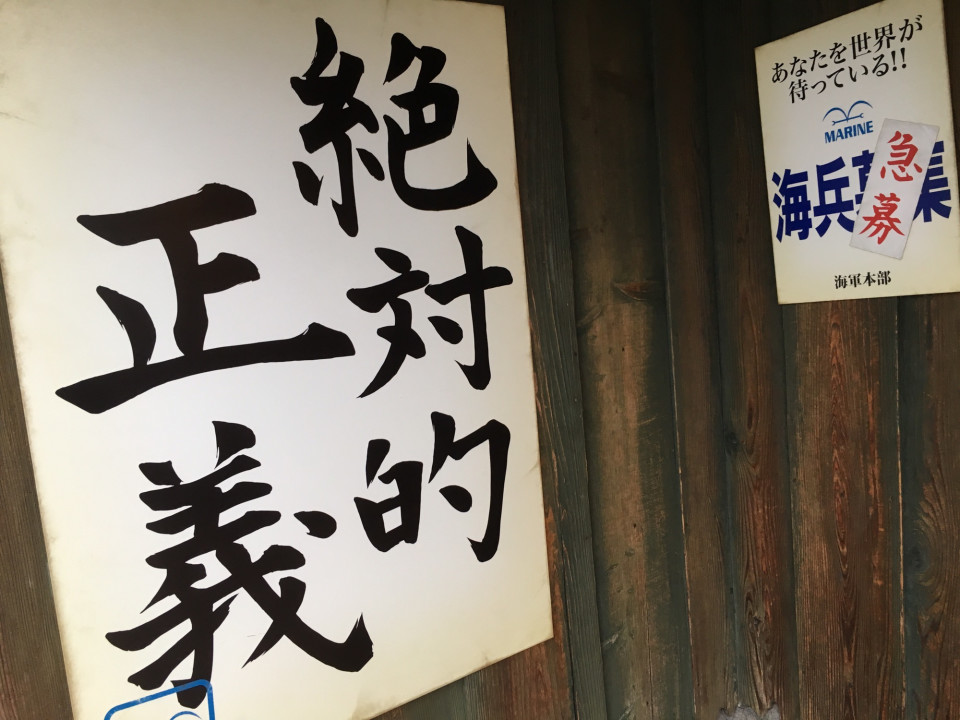 絶対的
正義
あなたを世界が
待っている!!
MARINE
海兵募集
急募
海軍本部